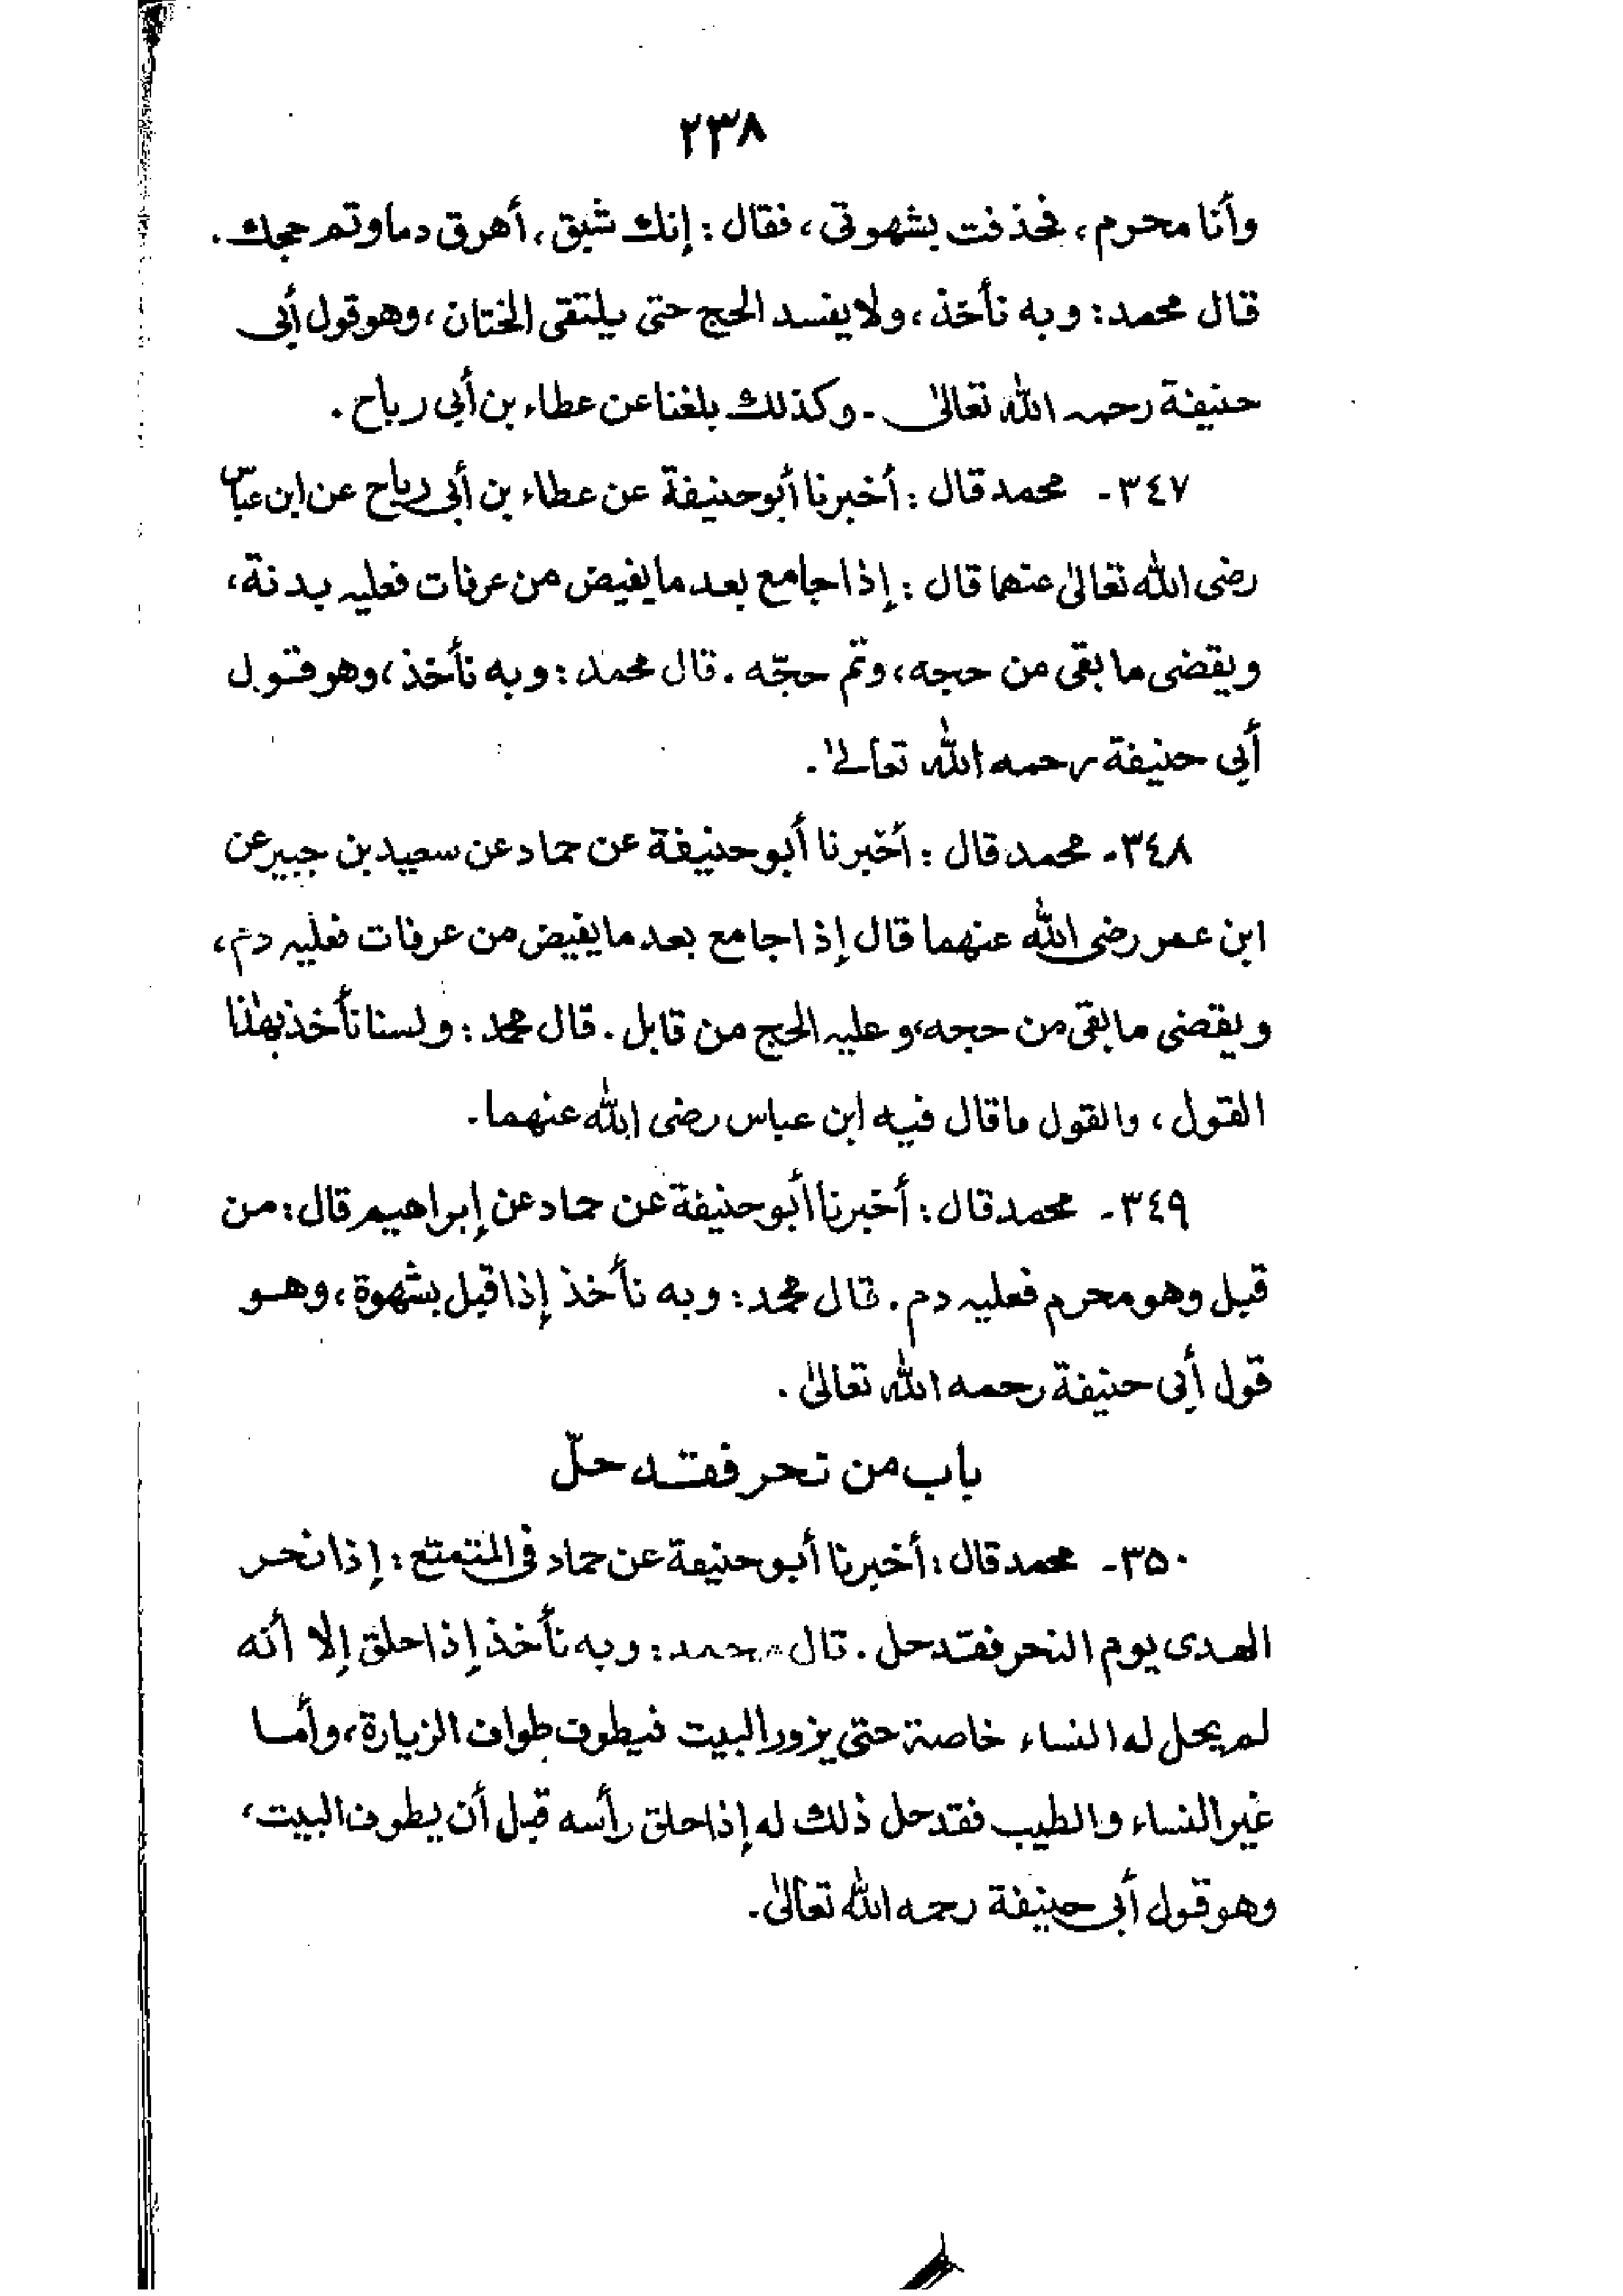 ٢٣٨
وأنا محرم، فخذفت بشهوتى، فقال: إنك شبق، أهرق دما وتم حجك.
قال محمد: وبه نأخذ، ولا يفسد الحج حتى يلتقى الختان، وهو قول أبى
حنيفة رحمه الله تعالى ـ وكذلك بلغنا عن عطاء بن أبى رباح.
٣٤٧ـ محمد قال: أخبرنا أبو حنيفة عن عطاء بن أبى رباح عن ابن عباس
رضى الله تعالىٰ عنهما قال: إذا جامع بعد ما يفيض من عرفات فعليه بدنة،
ويقضى ما بقى من حجه، وتم حجّه. قال محمد: وبه نأخذ، وهو قول
أبى حنيفة رحمه الله تعالىٰ.
٣٤٨ـ محمد قال: أخبرنا أبو حنيفة عن حماد عن سعيد بن جبير عن
ابن عمر رضى الله عنهما قال إذا جامع بعد ما يفيض من عرفات فعليه دم،
ويقضى ما بقى من حجه، وعليه الحج من قابل. قال محمد: ولسنا نأخذ بهٰذا
القول، والقول ما قال فيه ابن عباس رضى الله عنهما.
٣٤٩ـ محمد قال: أخبرنا أبو حنيفة عن حماد عن إبراهيم قال: من
قبل وهو محرم فعليه دم. قال محمد: وبه نأخذ إذا قبل بشهوة، وهو
قول أبى حنيفة رحمه الله تعالىٰ.
باب من نحر فقد حلّ
٣٥٠ـ محمد قال: أخبرنا أبو حنيفة عن حماد فى المتمتع: إذا نحر
الهدى يوم النحر فقد حل. قال محمد: وبه نأخذ إذا حلق إلا أنه
لم يحل له النساء خاصة حتى يزور البيت فيطوف طواف الزيارة، وأما
غير النساء والطيب فقد حل ذلك له إذا حلق رأسه قبل أن يطوف البيت،
وهو قول أبى حنيفة رحمه الله تعالىٰ.